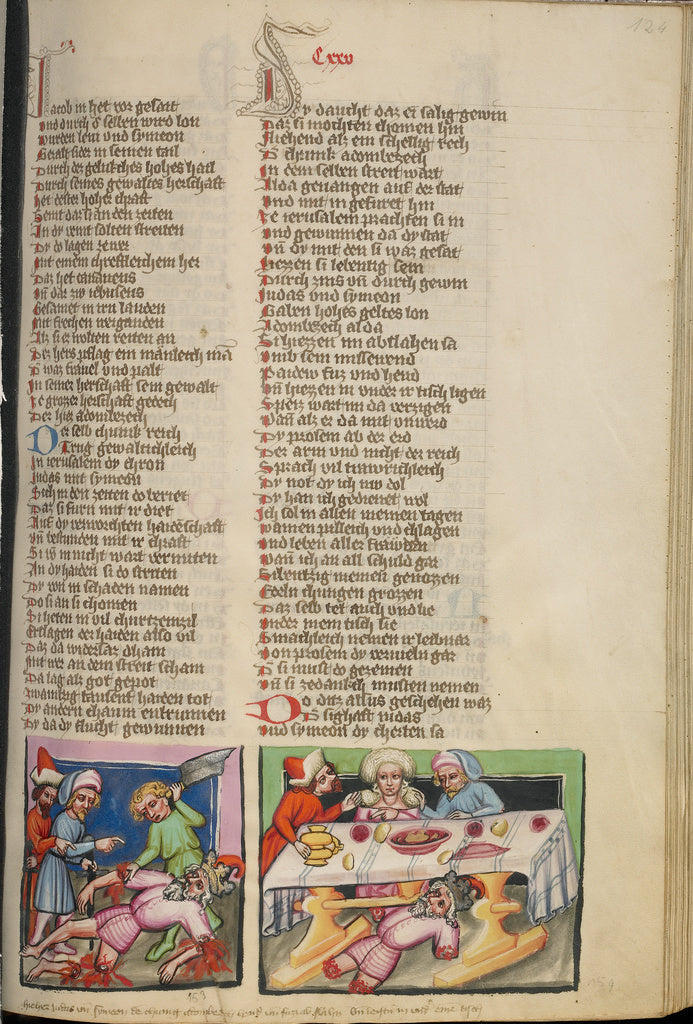 124
Cxxv
Jacob in het vor gesait
vnd durch d selben wird lon
wurden leui vnd symeon
Getailt sider in seinen tail
Durch der gelukches hohes hail
Durch seines gewaltes herschaft
het dester hoher chraft
Seint daz si an den zeiten
In dy wüst solten streiten
Dy do lagen
mit einem chreftleichem her
Daz het cananeus
vn daz zw iebuseus
Gesamet in irn landen
mit frechen weiganden
Als si er wolten reiten an
Der hers pflag ein mänleich mā
D waz frauel vnd palt
In seiner herschaft sein gewalt
Ze grozer herschaft gedech
Der hiez adonibezech
Der selb chunik reich
Trug gewaltichleich
In ierusalem dy chron
Judas mit symeon
Sich in den zeiten do beriet
Daz si furn mit ir diet
Auf dy verworchten haideschaft
vn bestunden mit ir chraft
Si des nicht wart vermiten
An dy haiden si do striten
Dy von in schaden namen
Do si an si chomen
Si heten in vil churtzem zil
Erslagen der haiden also vil
Daz da widersaz dhain
mit wer an dem streit schain
Da lag als got gepot
zwainczig tausent haiden tot
Dy andern chaum entrunnen
Dy da dy flucht gewunnen
Dy daucht daz ez salig gewin
Daz si mochten chomen hin
Fliehend als ein schellig rech
D chunik adonibezech
In dem selben streit wart
Alda geuangen auf der stat
vnd mit in gefuret hin
Ze ierusalem prachten si in
vnd gewunnen da dy stat
vn dy mit den si waz gesat
Liezzen si lebentig sein
Durch zins vn durch gewin
Judas vnd symeon
Gaben hohes geltes lon
Adonibezech alda
Si hiezzen im abslahen sa
vmb sein missewend
Paidew fuz vnd hend
vn hiezzen in vnder ir tisch ligen
Speiz wart im da verzigen
Wan als er da mit vnwerd
Dy prosem ab der erd
Der arm vnd nicht der reich
Sprach vil traurichleich
Dy not dy ich nw dol
Dy han ich gedienet wol
Ich sol in allen meinen tagen
wainen pilleich vnd chlagen
vnd leben aller frawden
Wan ich an all schuld gar
Sibentzig meinen genozzen
Edeln chungen grozzen
Daz selb tet auch vnd lie
vnder mein tisch hie
Smachleich nemen ir leibnar
Von prosem dy verueln gar
D si must do gezemen
vn si zedankch musten nemen
Do ditz allus geschehen waz
D sighaft iudas
vnd symeon dy cherten sa
153
159